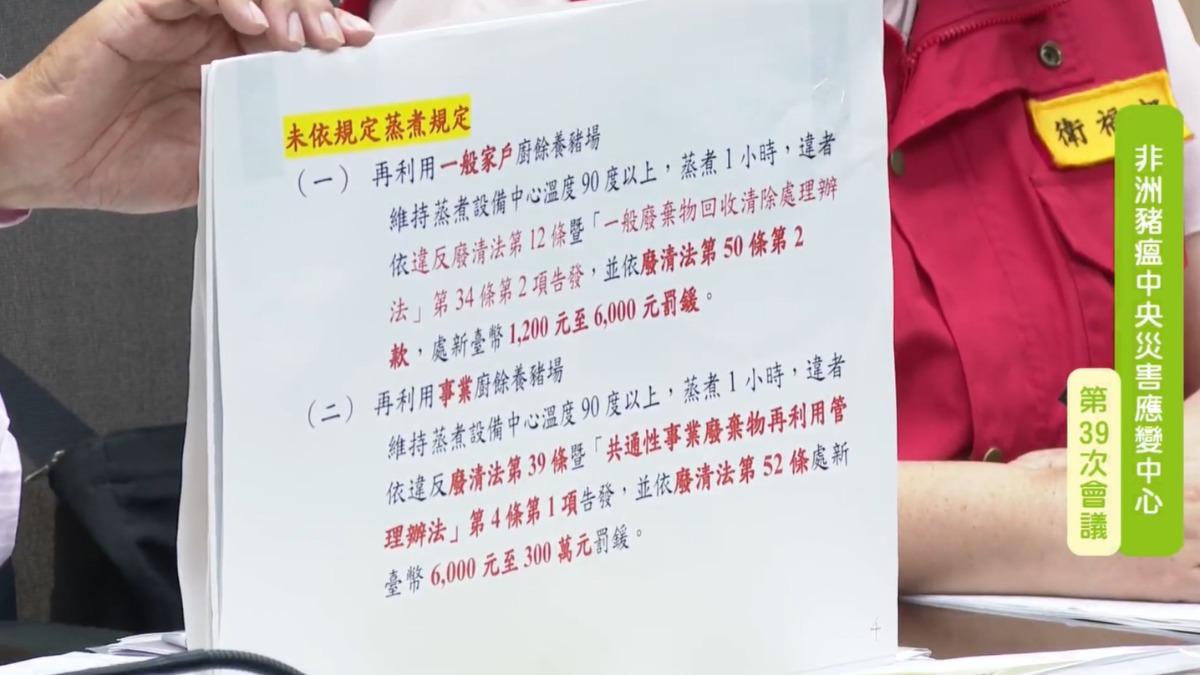 未依規定蒸煮規定
（一） 再利用一般家戶廚餘養豬場
維持蒸煮設備中心溫度90度以上，蒸煮1小時，違者
依違反廢清法第12條暨「一般廢棄物回收清除處理辦
法」第34條第2項告發，並依廢清法第50條第2
款，處新臺幣1,200元至6,000元罰鍰。
（二） 再利用事業廚餘養豬場
維持蒸煮設備中心溫度90度以上，蒸煮1小時，違者
依違反廢清法第39條暨「共通性事業廢棄物再利用管
理辦法」第4條第1項告發，並依廢清法第52條處新
臺幣6,000元至300萬元罰鍰。
衛福
非洲豬瘟中央災害應變中心
第39次會議